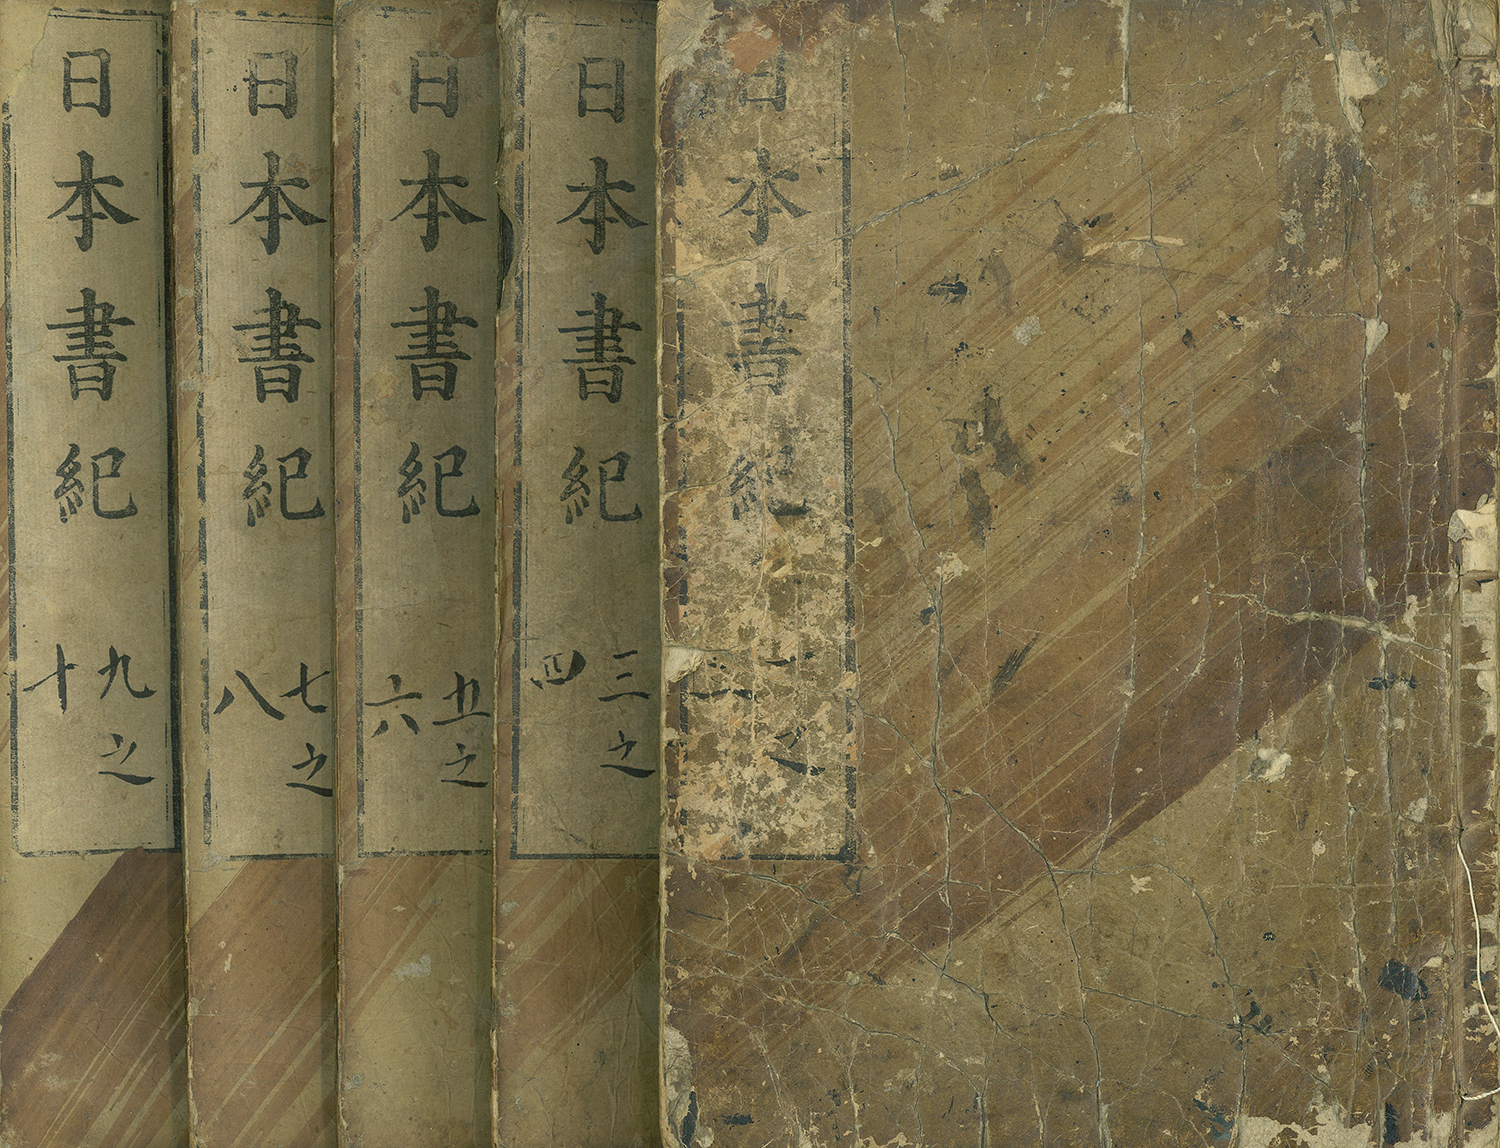 日本書紀
一之
二
日本書紀
三之
四
日本書紀
五之
六
日本書紀
七之
八
日本書紀
九之
十